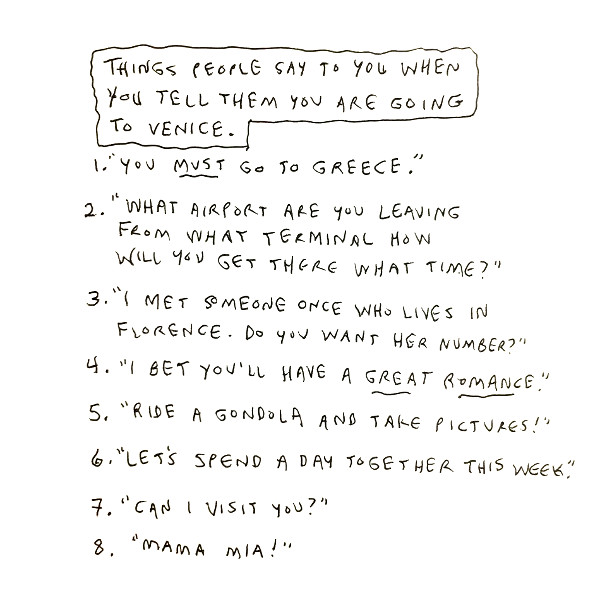 THINGS PEOPLE SAY TO YOU WHEN
YOU TELL THEM YOU ARE GOING
TO VENICE.
1. "YOU MUST GO TO GREECE."
2. "WHAT AIRPORT ARE YOU LEAVING
FROM WHAT TERMINAL HOW
WILL YOU GET THERE WHAT TIME?"
3. "I MET SOMEONE ONCE WHO LIVES IN
FLORENCE. DO YOU WANT HER NUMBER?"
4. "I BET YOU'LL HAVE A GREAT ROMANCE."
5. "RIDE A GONDOLA AND TAKE PICTURES!"
6. "LET'S SPEND A DAY TOGETHER THIS WEEK."
7. "CAN I VISIT YOU?"
8. "MAMA MIA!"